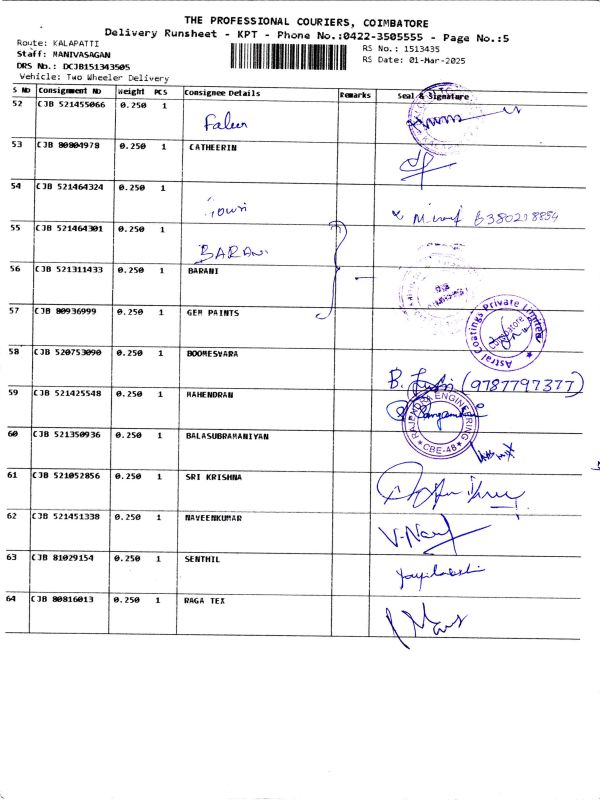 THE PROFESSIONAL COURIERS, COIMBATORE
Delivery Runsheet - KPT - Phone No.:0422-3505555 - Page No.:5
Route: KALAPATTI
RS No.: 1513435
Staff: MANIVASAGAN
RS Date: 01-Mar-2025
DRS No.: DCJB151343505
Vehicle: Two Wheeler Delivery
S No Consignment No Weight PCS Consignee Details Remarks Seal & Signature
52 CJB 521455066 0.250 1
53 CJB 80804978 0.250 1 CATHEERIN
54 CJB 521464324 0.250 1
6380218854
55 CJB 521464301 0.250 1 BARANI
56 CJB 521311433 0.250 1 BARANI
57 CJB 80936999 0.250 1 GEM PAINTS
Astral Coatings Private Limited
Coimbatore
58 CJB 520753090 0.250 1 BOOMESVARA
B. (9787797377)
59 CJB 521425548 0.250 1 MAHENDRAN
RAJENDRA ENGINEERING
CBE-48
60 CJB 521350936 0.250 1 BALASUBRAMANIYAN
61 CJB 521052856 0.250 1 SRI KRISHNA
62 CJB 521451338 0.250 1 NAVEENKUMAR
63 CJB 81029154 0.250 1 SENTHIL
64 CJB 80816013 0.250 1 RAGA TEX